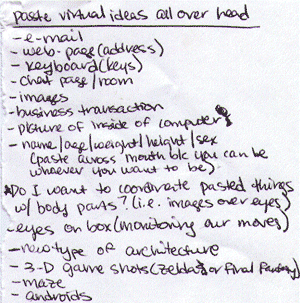 paste virtual ideas all over head
- e-mail
- web-page (address)
- keyboard (keys)
- chat page/room
- images
- business transaction
- picture of inside of computer
- name/age/weight/height/sex
(paste across mouth b/c you can be
whoever you want to be)
Do I want to coordinate pasted things
w/ body parts? (i.e. images over eyes)
- eyes on box (monitoring our moves)
- new type of architecture
- 3-D game shots (Zelda or Final Fantasy)
- maze
- androids